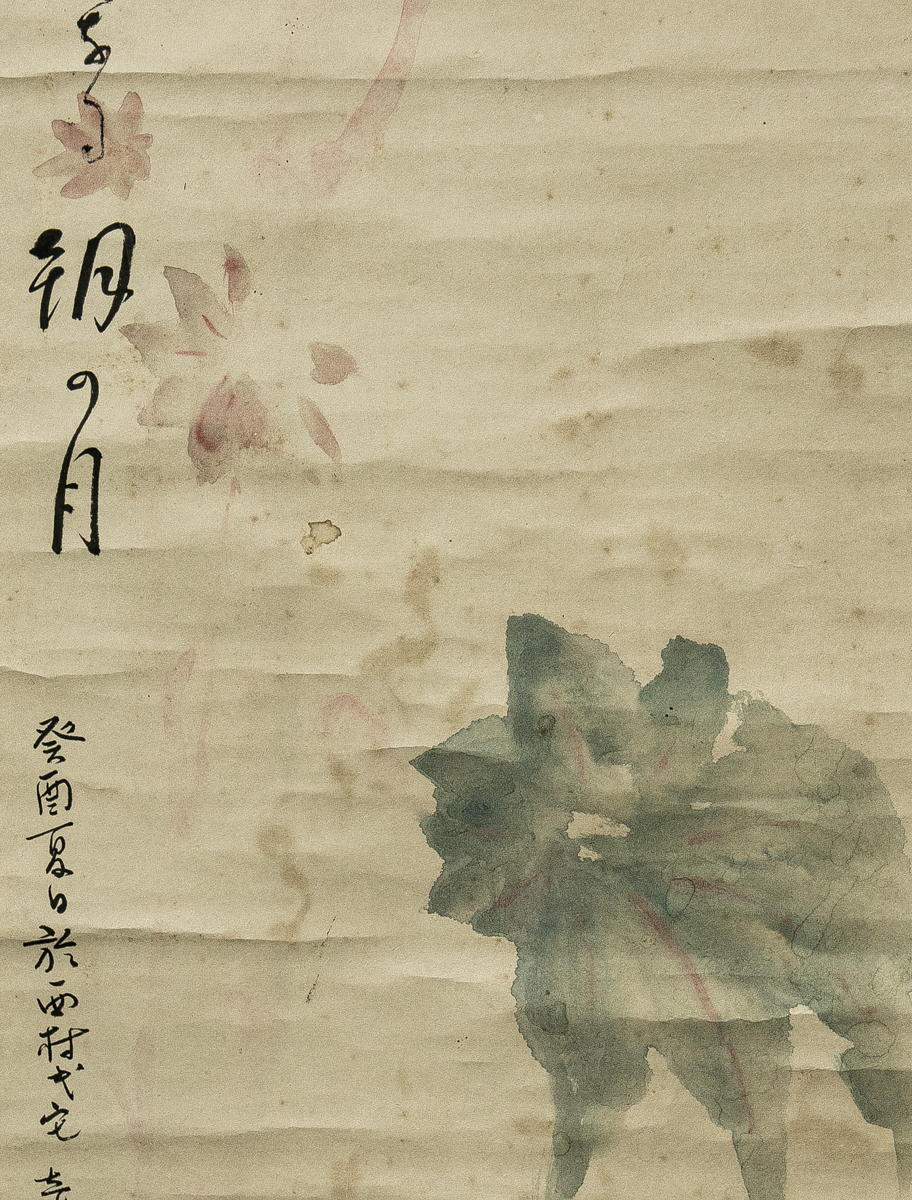 朝の月
癸酉夏日於西村氏宅